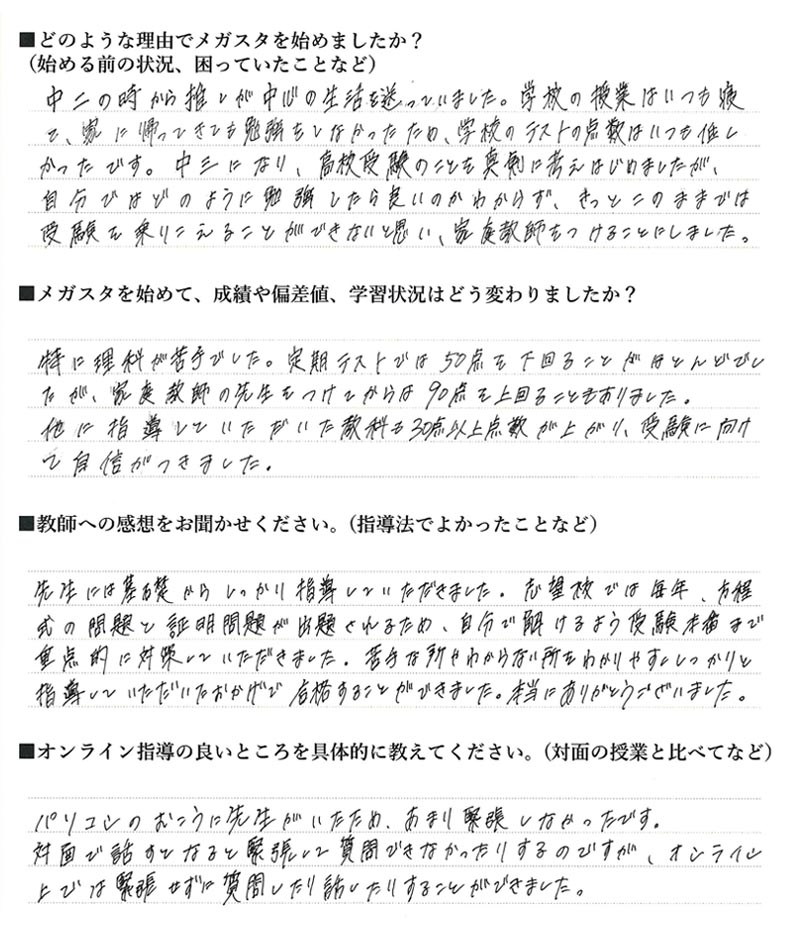 ■どのような理由でメガスタを始めましたか？
（始める前の状況、困っていたことなど）
中二の時から推しが中心の生活を送っていました。学校の授業はいつも寝
て、家に帰ってきても勉強をしなかったため、学校のテストの点数はいつも低し
かったです。中三になり、高校受験のことを真剣に考えはじめましたが、
自分ではどのように勉強したら良いのかわからず、きっとこのままでは
受験を乗りこえることができないと思い、家庭教師をつけることにしました。
■メガスタを始めて、成績や偏差値、学習状況はどう変わりましたか？
特に理科が苦手でした。定期テストでは50点を下回ることがほとんどでし
たが、家庭教師の先生をつけてからは90点を上回ることもありました。
他に指導していただいた教科も30点以上点数が上がり、受験に向け
て自信がつきました。
■教師への感想をお聞かせください。（指導法でよかったことなど）
先生には基礎からしっかり指導していただきました。志望校では毎年、方程
式の問題と証明問題が出題されるため、自分で解けるよう受験本番まで
重点的に対策していただきました。苦手な所やわからない所をわかりやすくしっかりと
指導していただいたおかげで合格することができました。本当にありがとうございました。
■オンライン指導の良いところを具体的に教えてください。（対面の授業と比べてなど）
パソコンのむこうに先生がいたため、あまり緊張しなかったです。
対面で話すとなると緊張して質問できなかったりするのですが、オンライン
上では緊張せずに質問したり話したりすることができました。